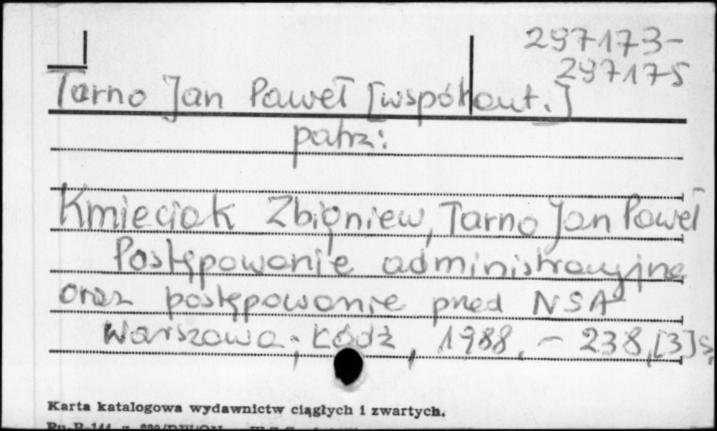 297173-
297175
Tarno Jan Paweł [współaut.]
patrz:
Kmieciak Zbigniew, Tarno Jan Paweł
Postępowanie administracyjne
oraz postępowanie przed NSA
Warszawa; Łódź, 1988. – 238, [3] s.
Karta katalogowa wydawnictw ciągłych i zwartych.